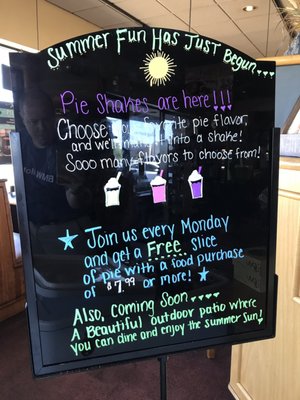 Summer Fun Has Just Begun....
Pie Shakes are here!!!
Choose your favorite pie flavor,
and we'll make it into a shake!
Sooo many flavors to choose from!
Join us every Monday
and get a Free slice
of pie with a food purchase
of $7.99 or more!
Also, Coming Soon
A Beautiful outdoor patio where
you can dine and enjoy the summer Sun!